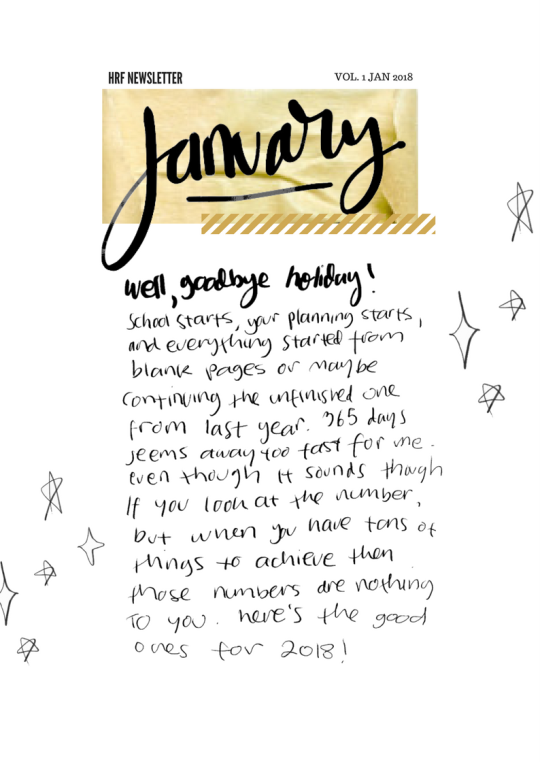 HRF NEWSLETTER
VOL. 1 JAN 2018
January
well, goodbye holiday!
School starts, your planning starts,
and everything started from
blank pages or maybe
continuing the unfinished one
from last year. 365 days
seems away too fast for me.
even though it sounds though
If you look at the number,
but when you have tons of
things to achieve then
those numbers are nothing
TO you. here's the good
ones for 2018!